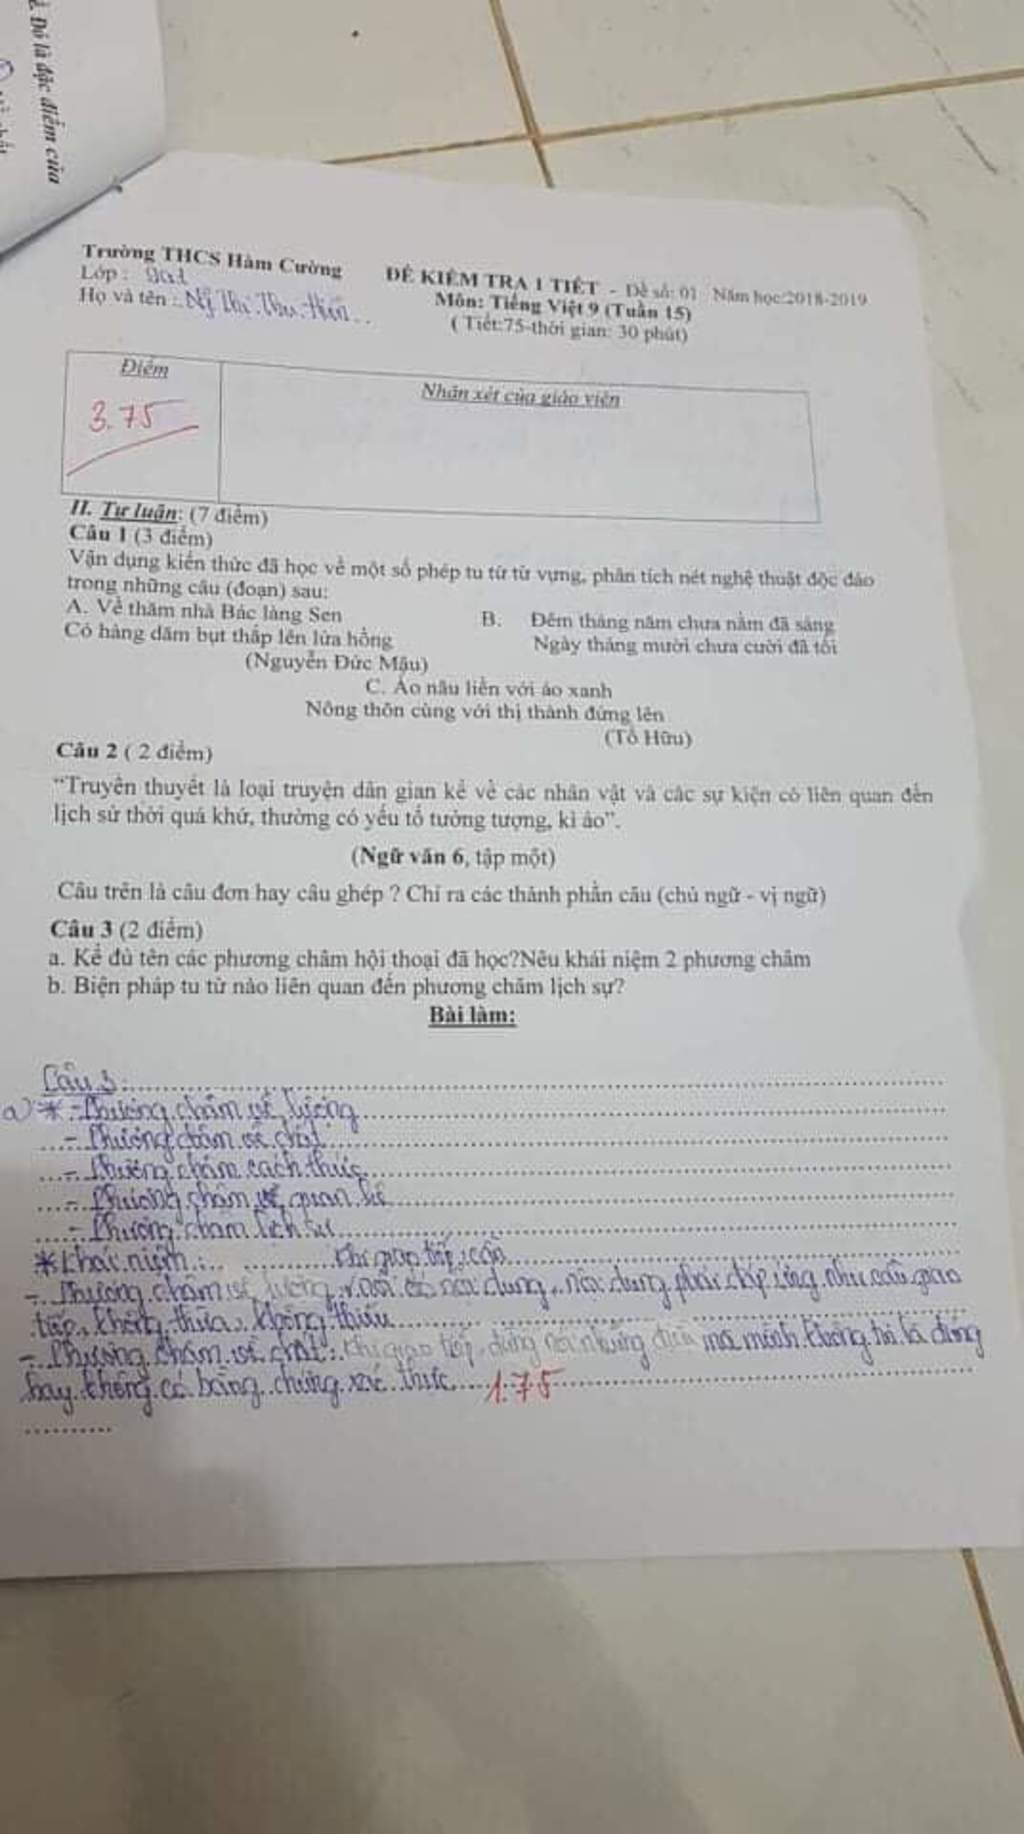 Đó là đặc điểm của
Trường THCS Hàm Cường
Lớp: 9a1
Họ và tên: Ng Thị Thu Hiền
ĐỀ KIỂM TRA 1 TIẾT - Đề số: 01 Năm học:2018-2019
Môn: Tiếng Việt 9 (Tuần 15)
( Tiết:75-thời gian: 30 phút)
Điểm
Nhận xét của giáo viên
3.75
II. Tự luận: (7 điểm)
Câu 1 (3 điểm)
Vận dụng kiến thức đã học về một số phép tu từ từ vựng, phân tích nét nghệ thuật độc đáo
trong những câu (đoạn) sau:
A. Về thăm nhà Bác làng Sen
Có hàng dăm bụt thắp lên lửa hồng
(Nguyễn Đức Mậu)
B. Đêm tháng năm chưa nằm đã sáng
Ngày tháng mười chưa cười đã tối
C. Áo nâu liền với áo xanh
Nông thôn cùng với thị thành đứng lên
(Tố Hữu)
Câu 2 ( 2 điểm)
“Truyền thuyết là loại truyện dân gian kể về các nhân vật và các sự kiện có liên quan đến
lịch sử thời quá khứ, thường có yếu tố tưởng tượng, kì ảo”.
(Ngữ văn 6, tập một)
Câu trên là câu đơn hay câu ghép ? Chỉ ra các thành phần câu (chủ ngữ - vị ngữ)
Câu 3 (2 điểm)
a. Kể đủ tên các phương châm hội thoại đã học?Nêu khái niệm 2 phương châm
b. Biện pháp tu từ nào liên quan đến phương châm lịch sự?
Bài làm:
Câu 3:
a) * - Phương châm về lượng
- Phương châm về chất
- Phương châm cách thức
- Phương châm quan hệ
- Phương châm lịch sự
* Khái niệm:
- Phương châm về lượng: khi giao tiếp, cần nói có nội dung, nội dung phải đáp ứng nhu cầu giao
tiếp, không thừa, không thiếu
- Phương châm về chất: khi giao tiếp, đừng nói những điều mà mình không tin là đúng
hay không có bằng chứng xác thực 1.75